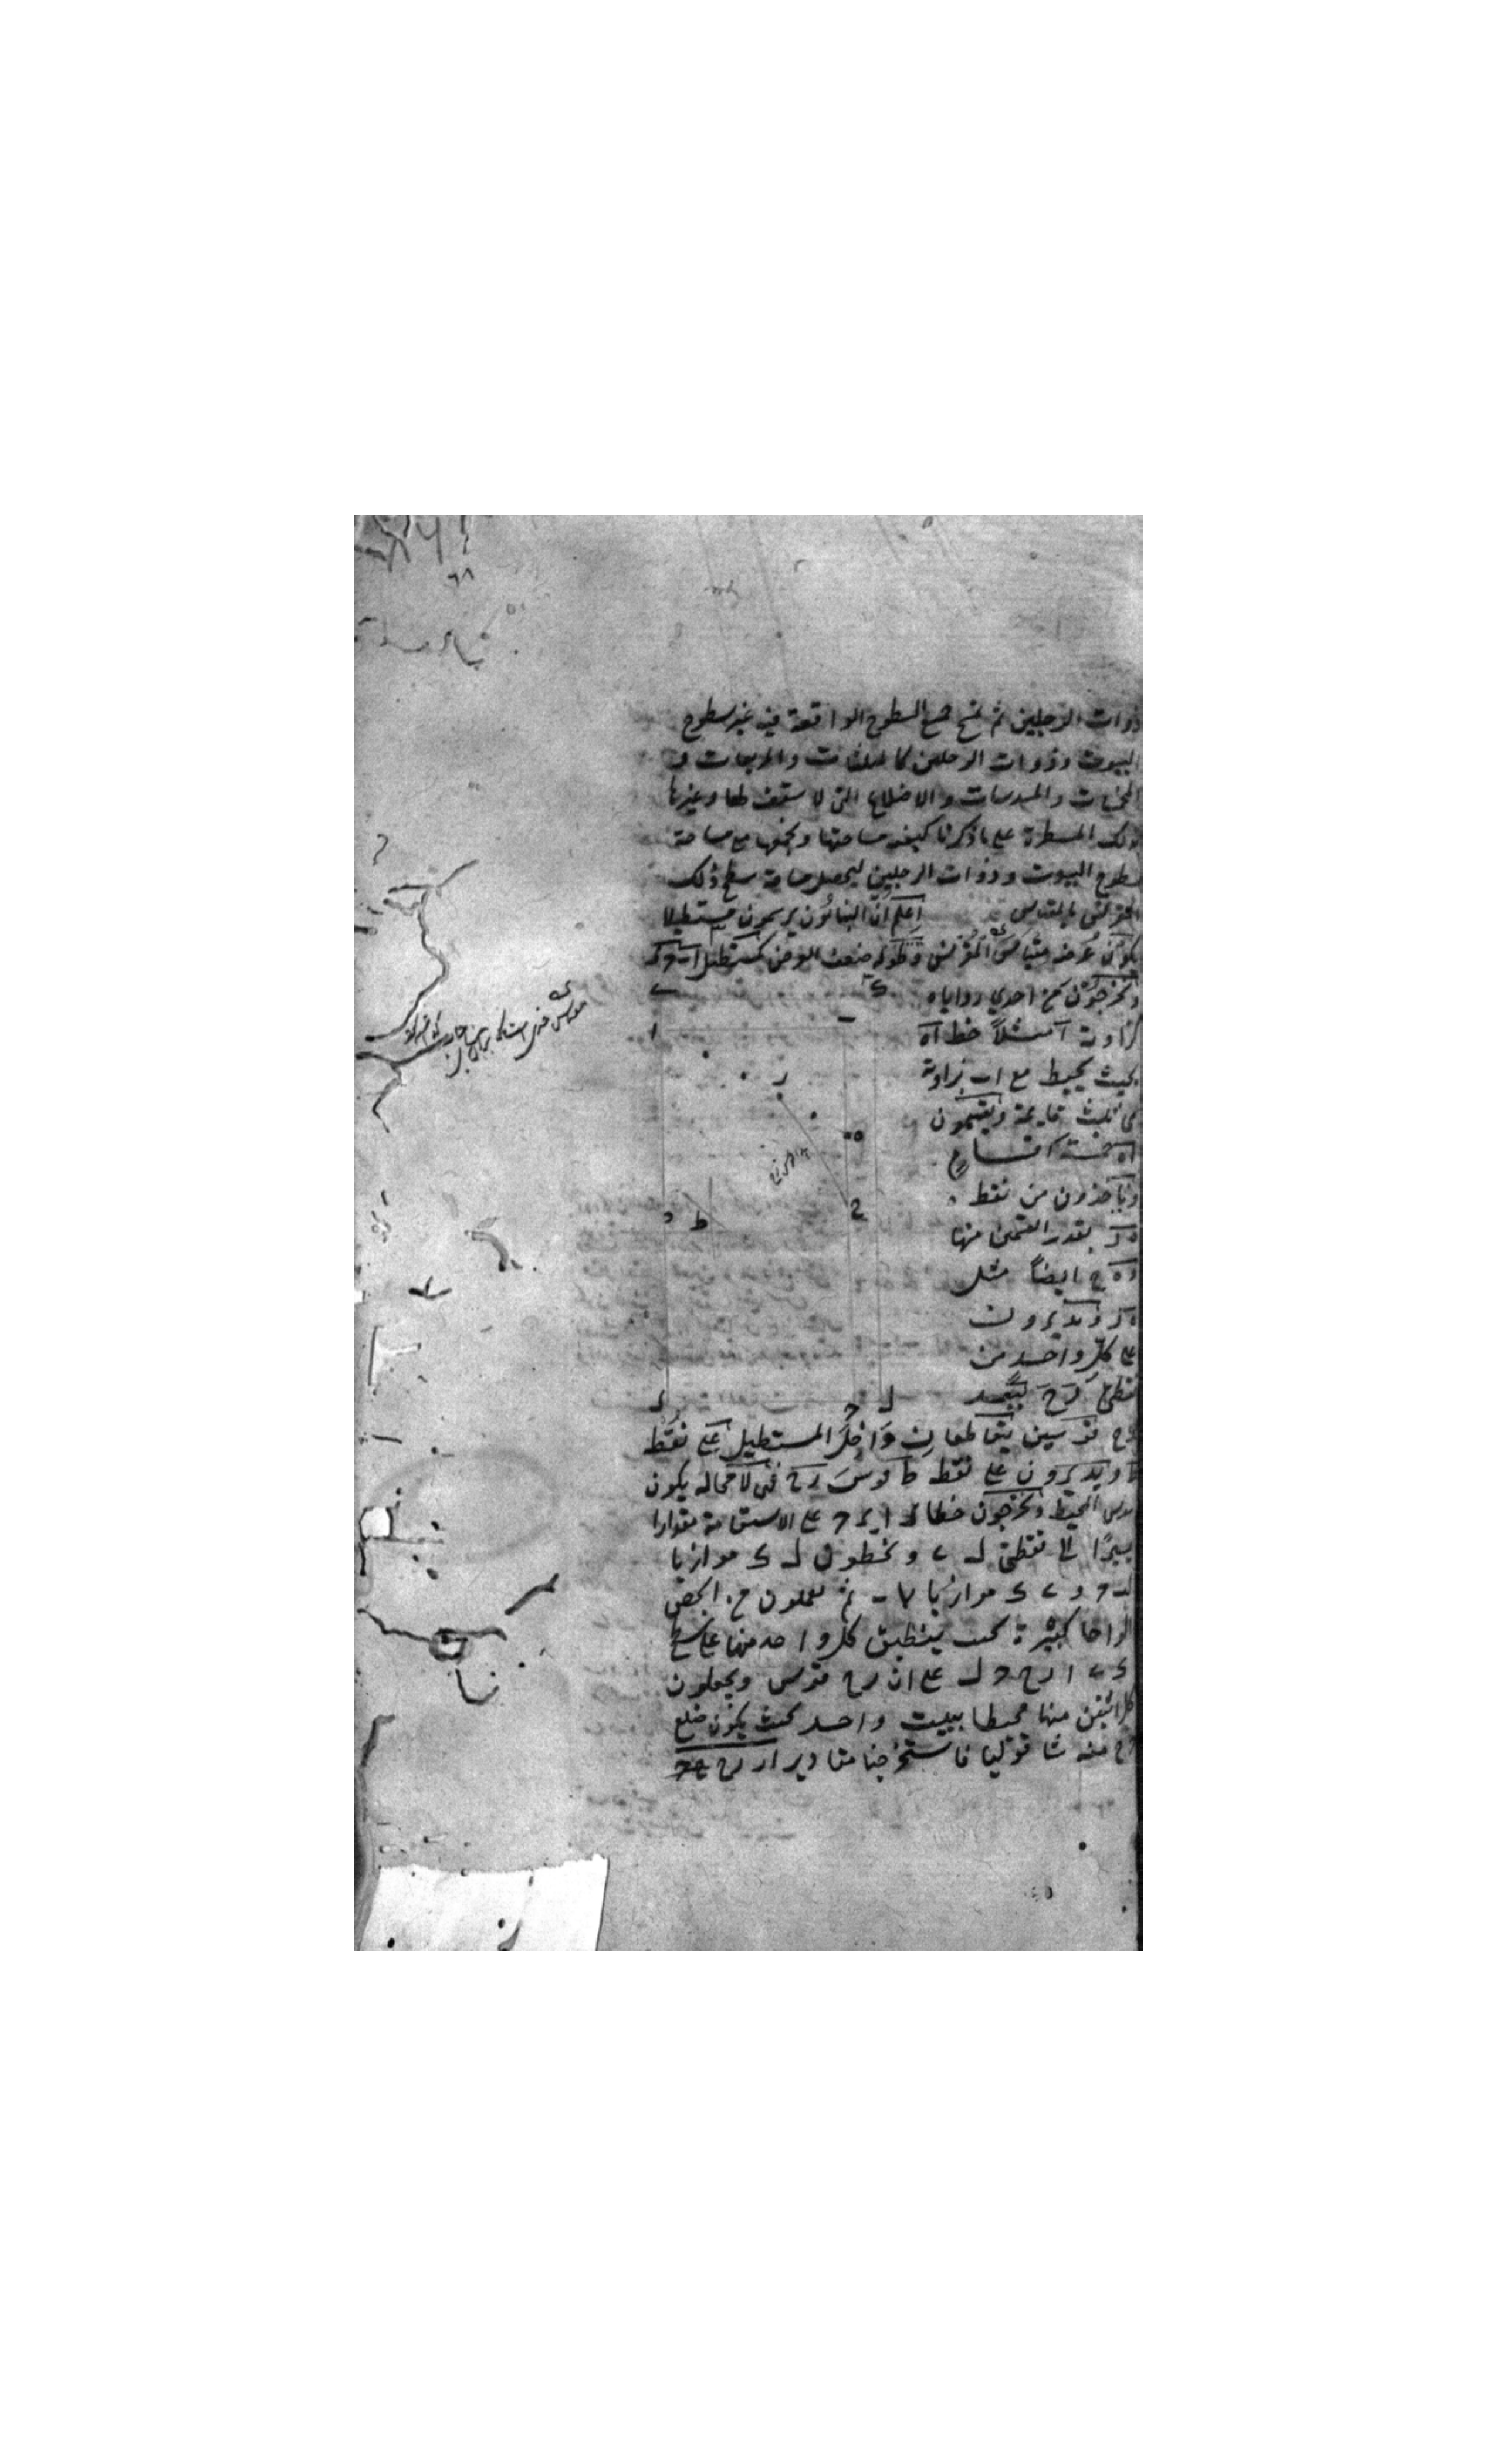 ذوات الرجلين ثم نمسح جميع السطوح الواقعة فيه غير سطوح
البيوت وذوات الرجلين كالمثلثات والمربعات و
المخمسات والمسدسات والاضلاع التي لا سقف لها وغيرها
المسطرة على ما ذكرنا كيفية مساحتها ونجمعها مع مساحة
سطوح البيوت وذوات الرجلين ليحصل مساحة سطح ذلك
المقرنس بالمقياس اعلم ان البنائون يرسمون مستطيلا
يكون عرضه مقياس المقرنس وطوله ضعف العرض كمستطيل
ويخرجون من احدي زواياه
كزاوية ا مثلاً خط اه
بحيث يحيط مع اب بزاوية
هي ثلث قايمة ويقسمون
اه خمسة اقسام
وياخذون من نقطة ه
ه ر بقدر القسمين منها
و ه ح ايضاً مثل
ه ر ويديرون
على كل واحد من
نقطتي ر ح ببعد
ر ح قوسين يتقاطعان داخل المستطيل على نقطة
ط ويديرون على نقطة ط قوس ر ح فهي لا محالة يكون
سدس المحيط ويخرجون خطا على الاستقامة مقدارا
يسيرًا الى نقطتي ل ويخطون ل موازيا
موازيا ثم يعملون من الجص
الواحا كثيرة بحيث ينطبق كل واحد منها على سطح
ا ر ح ل على ان ر ح قوس ويجعلون
كل اثنين منها محيطا ببيت واحد بحيث يكون ضلع
منه شاقوليا فاستخرجنا مقادير ا ر ر ح ح